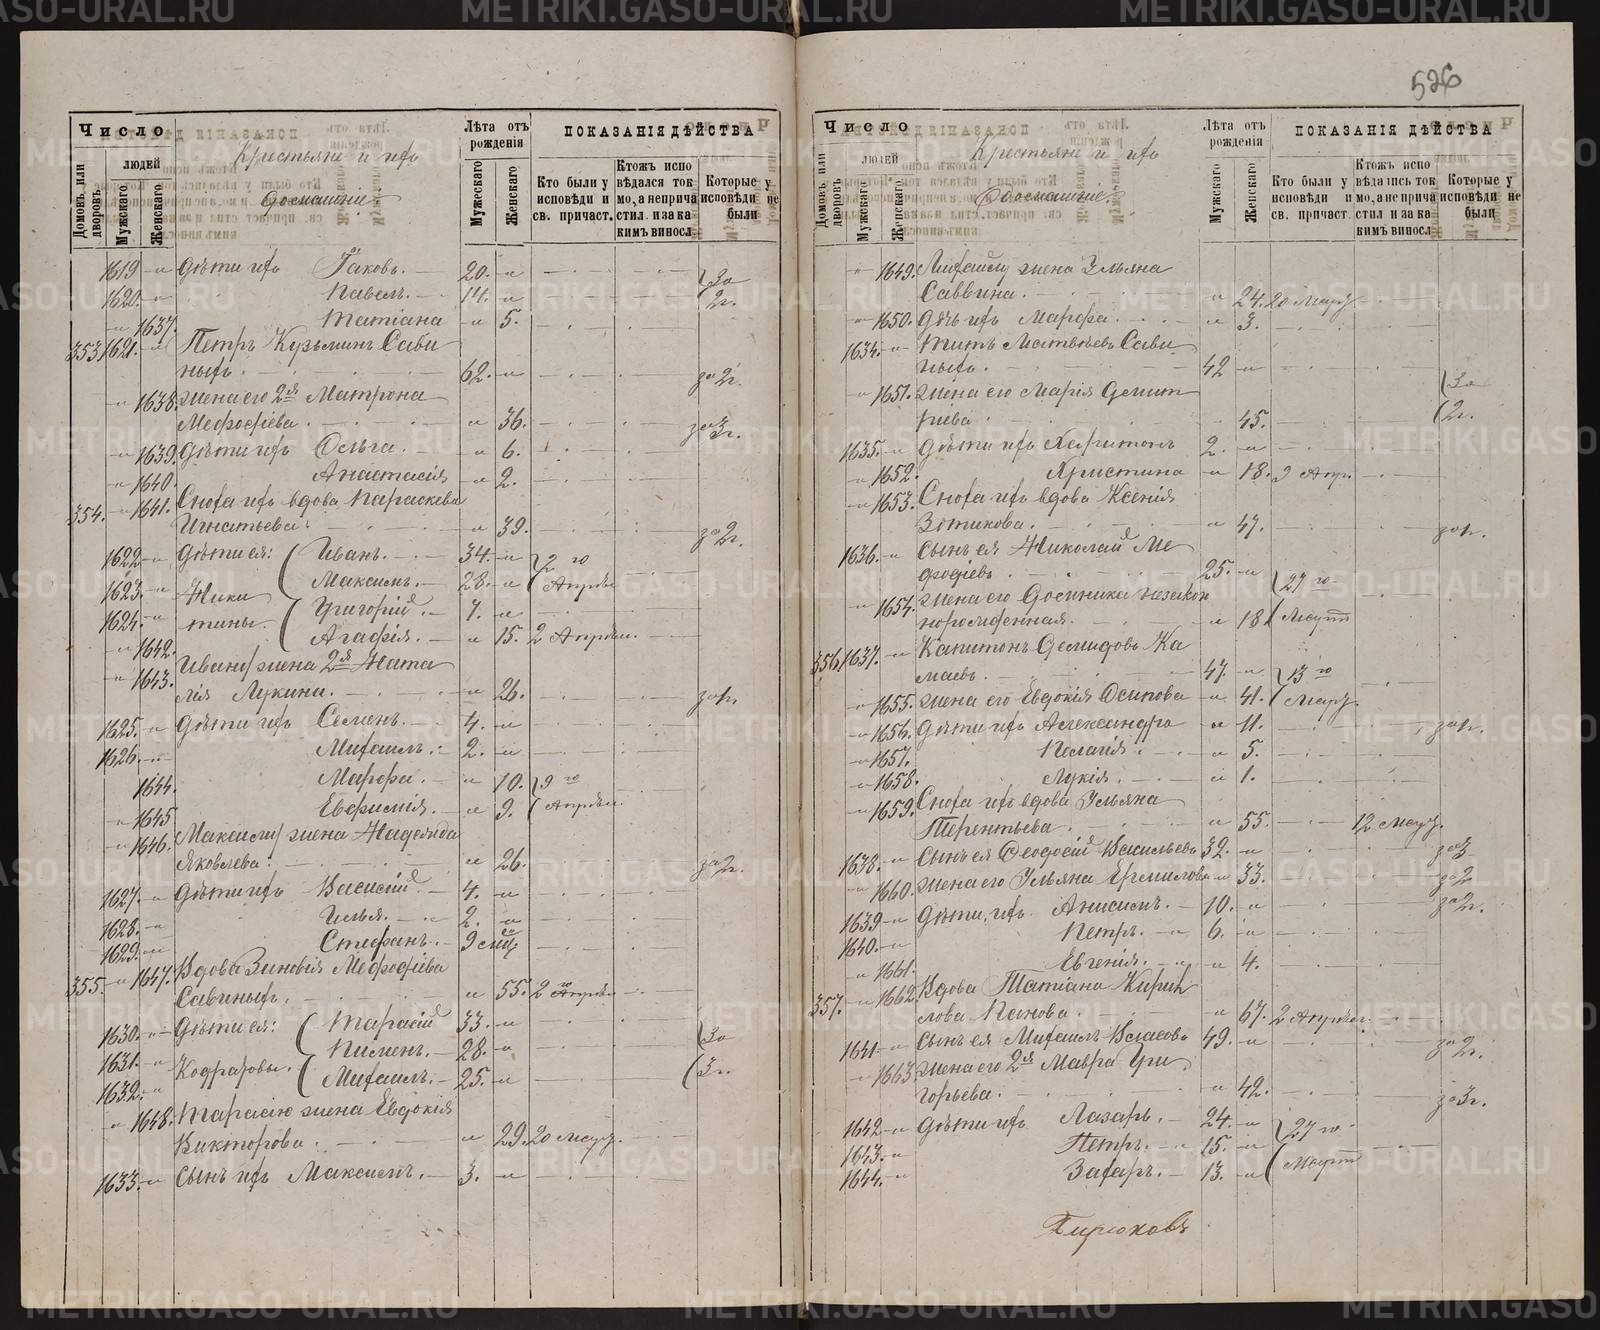 526
Число
людей
Домовъ или дворовъ
Мужскаго
Женскаго
Крестьяне и ихъ
домашніе.
Лѣта отъ рожденія
Мужескаго
Женскаго
ПОКАЗАНІЯ ДѢЙСТВА
Кто были у исповѣди и св. причаст.
Ктожъ испо вѣдался ток мо, а неприча стил. и за ка кимъ виносл.
Которые у исповѣди не были
1619 -"- Дѣти ихъ Іаковъ. 20. -"- } За
1620 -"- Павелъ. 14. -"- 2г.
-"- 1637. Татіана -"- 5.
353 1621. -"- Петръ Кузьминъ Сави
ныхъ. 62. -"- за 2г.
-"- 1638. Жена его 2я Матрона
Меѳодіева. -"- 36. за 3г.
-"- 1639. Дѣти ихъ Ольга. -"- 6.
-"- 1640. Анастасія -"- 2.
354. -"- 1641. Сноха ихъ вдова Параскева
Игнатьева. -"- 39. за 2г.
1622 -"- Дѣти ея: Иванъ. 34. -"- 2 го
1623. -"- Ники Максимъ. 28. -"- Апрѣля
1624. -"- тины. Григорій. 7. -"-
-"- 1642. Агафія. -"- 15. 2 Апрѣля.
-"- 1643. Ивана жена 2я Ната
лія Лукина. -"- 26. за 1г.
1625. -"- Дѣти ихъ Семенъ. 4. -"-
1626. -"- Михаилъ. 2. -"-
1644. Марфа. -"- 10. 9 го
-"- 1645 Евфимія. -"- 9. Апрѣля.
-"- 1646. Максима жена Надежда
Яковлева. -"- 26. за 2г.
1627. -"- Дѣти ихъ Василій 4. -"-
1628. -"- Илья. 2. -"-
1629. -"- Стефанъ. 9 мѣц
355. -"- 1647. Вдова Зиновія Меѳодіева
Савиныхъ. -"- 55. 2 го Апрѣля
1630. -"- Дѣти ея: Тарасій 33. -"- За
1631. -"- Кодратовы. Пименъ. 28. -"- 3г.
1632. -"- Михаилъ. 25. -"-
-"- 1648. Тарасію жена Евдокія
Викторова. -"- 29. 20 Март.
1633. -"- Сынъ ихъ Максимъ. 3. -"-
Число
людей
Домовъ или дворовъ
Мужскаго
Женскаго
Крестьяне и ихъ
Домашніе.
Лѣта отъ рожденія
Мужескаго
Женскаго
ПОКАЗАНІЯ ДѢЙСТВА
Кто были у исповѣди и св. причаст.
Ктожъ испо вѣдался ток мо, а неприча стил. и за ка кимъ виносл
Которые у исповѣди не были
-"- 1649. Михаилу жена Ульяна
Саввина. -"- 24. 20 Март
-"- 1650. Дѣч ихъ Марфа. -"- 3.
1634. -"- Титъ Матвѣевъ Сави
ныхъ. 42 -"-
-"- 1651. Жена его Марія Демит За
ріева -"- 45. 2г.
1635. -"- Дѣти ихъ Харитонъ 2. -"-
-"- 1652. Христина -"- 18. 9 Апр.
-"- 1653. Сноха ихъ вдова Ксенія
Зотикова. -"- 47. за 1г.
1636. -"- Сынъ ея Николай Ме
ѳодіевъ. 25. -"- 27 го
-"- 1654. Жена его Домника незакон
норожденная. -"- 18 Март
356. 1637. -"- Капитонъ Демидовъ Ка
маевъ. 47. -"- 13 го
-"- 1655. Жена его Евдокія Осипова -"- 41. Март.
-"- 1656. Дѣти ихъ Александра -"- 11. за 1г.
-"- 1657. Пелагія. -"- 5.
-"- 1658. Лукія. -"- 1.
-"- 1659. Сноха ихъ вдова Ульяна
Терентьева. -"- 55. 12 Март.
1638. -"- Сынъ ея Ѳеодосій Васильевъ 32. -"- за 3
-"- 1660. Жена его Ульяна Ермилова -"- 33. за 2
1639 -"- Дѣти ихъ Анисимъ. 10. -"- за 2г.
1640. -"- Петръ. 6. -"-
-"- 1661. Евгенія. -"- 4.
357. -"- 1662. Вдова Татіана Кирил
лова Панова. -"- 67. 2 Апрѣля.
1641 -"- Сынъ ея Михаилъ Власовъ 49. -"- за 2г.
-"- 1663. Жена его 2я Мавра Гри
горьева. -"- 42. за 3г.
1642 -"- Дѣти ихъ Лазарь. 24. -"- 27 го
1643. -"- Петръ. 15. -"-
1644. -"- Захаръ. 13. -"- Март
METRIKI.GASO-URAL.RU